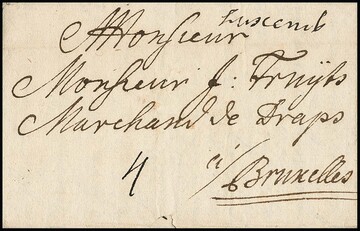 Monsieur
Monsieur J: Truyts
Marchand de Draps
4
à / Bruxelles